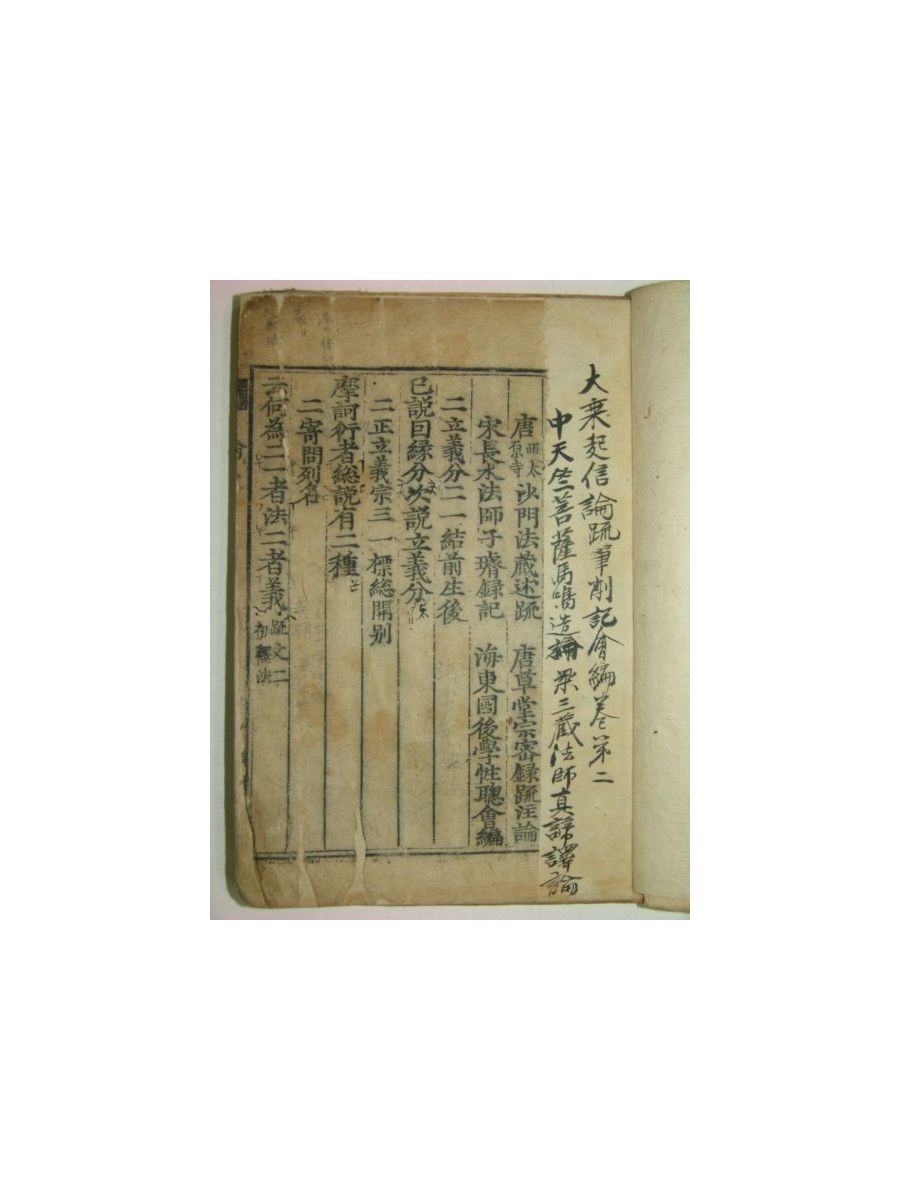 大乗起信論疏筆削記會編巻第二
中天竺菩薩馬鳴造論 梁三藏法師真諦譯論
唐西太原寺沙門法藏述疏 唐草堂宗密録疏注論
宋長水法師子璿録記 海東國後學性聰會編
二立義分二一結前生後
已說因緣分次說立義分
二正立義宗三一標總開别
摩訶衍者総說有二種
二寄問列名
云何為二一者法二者義疏文二初釋法